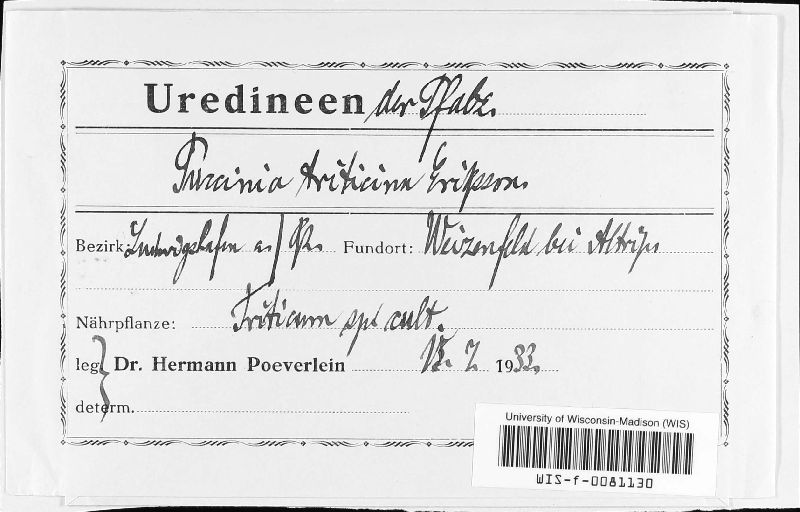 Uredineen der Pfalz.
Puccinia triticina Eriksson.
Bezirk: Ludwigshafen a./Rh. Fundort: Weizenfeld bei Altrip
Nährpflanze: Triticum sp. cult.
leg. Dr. Hermann Poeverlein 13. 7. 1933.
determ.
University of Wisconsin-Madison (WIS)
WIS-f-0081130